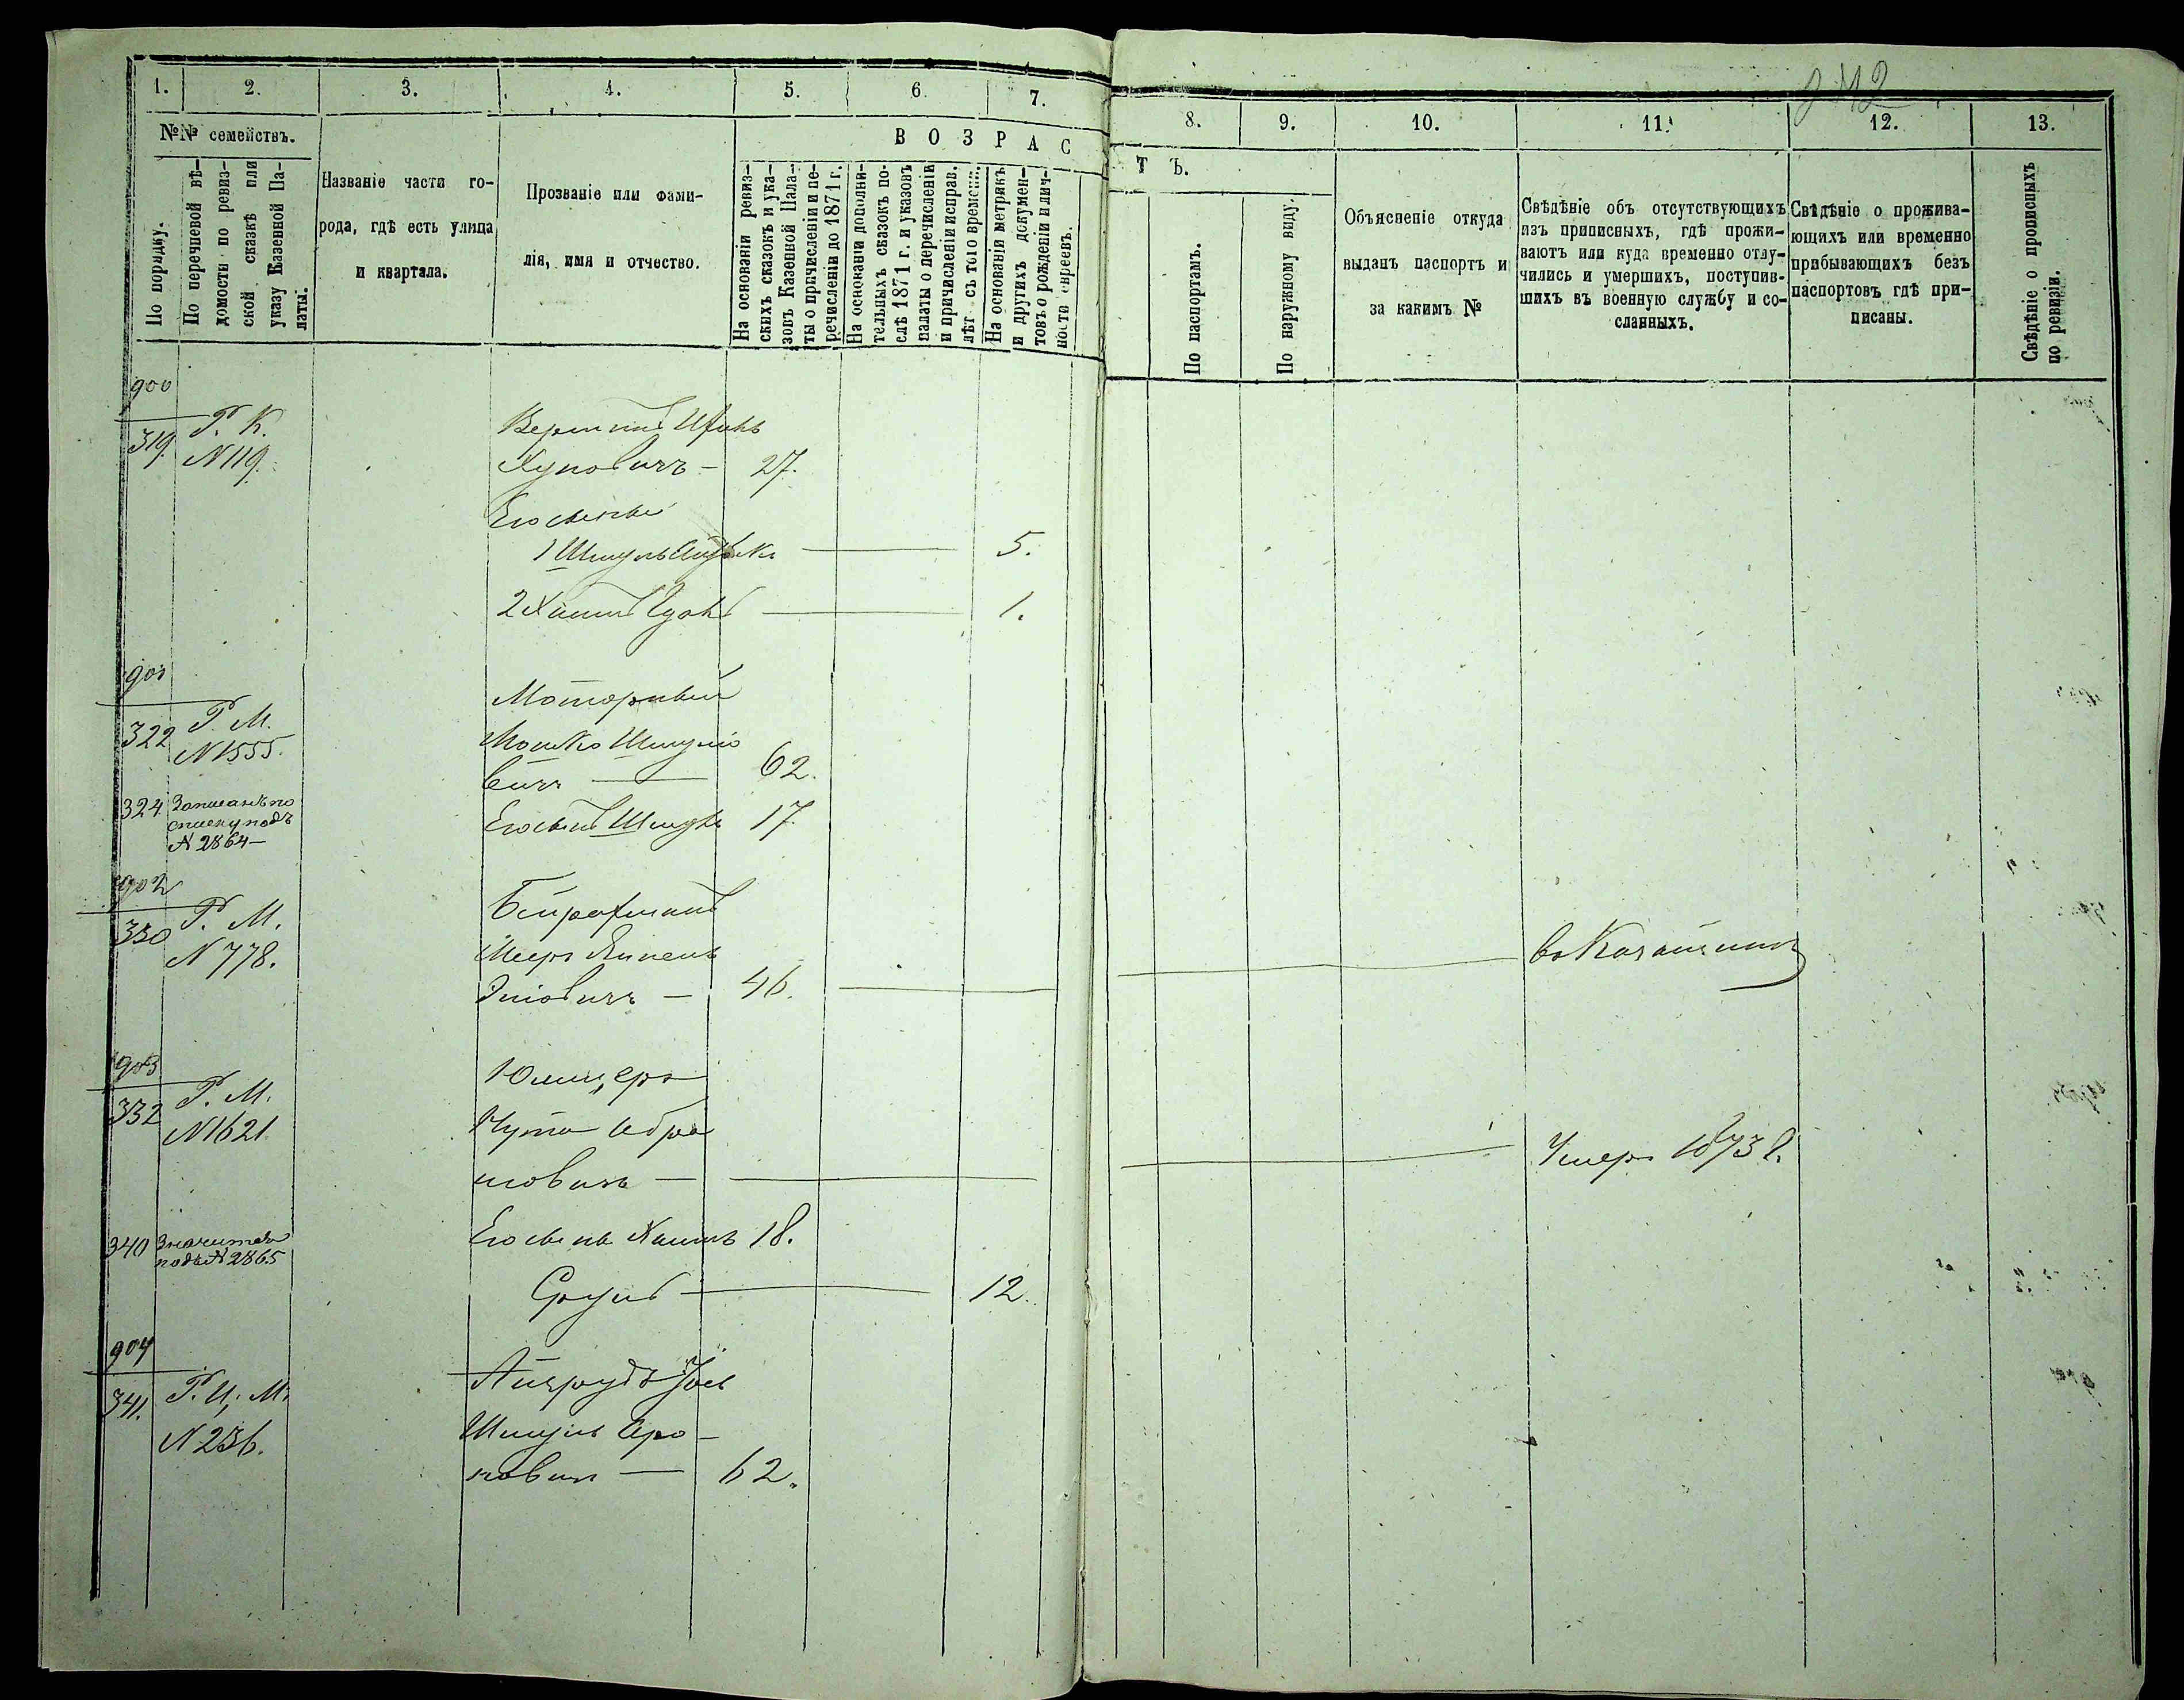 242
1.
2.
3.
4.
5.
6.
7.
8.
9.
10.
11.
12.
13.
№№ семействъ.
По порядку.
По перечневой вѣ-
домости по ревиз-
ской сказкѣ или
указу Казенной Па-
латы.
Названіе части го-
рода, гдѣ есть улица
и квартала.
Прозваніе или фами-
лія, имя и отчество.
ВОЗРАС
ТЪ.
На основаніи ревиз-
скихъ сказокъ и ука-
зовъ Казенной Пала-
ты о причисленіи и пе-
речисленіи до 1871 г.
На основаніи дополни-
тельныхъ сказокъ по-
слѣ 1871 г. и указовъ
палаты о перечисленіи
и причисленіи исправ.
лѣт съ того времени.
На основаніи метрикъ
и другихъ докумен-
товъ о рожденіи и лич-
ности евреевъ.
По паспортамъ.
По наружному виду.
Объясненіе откуда
выданъ паспортъ и
за какимъ №
Свѣдѣніе объ отсутствующихъ
изъ приписныхъ, гдѣ прожи-
ваютъ или куда временно отлу-
чились и умершихъ, поступив-
шихъ въ военную службу и со-
сланныхъ.
Свѣдѣніе о прожива-
ющихъ или временно
прибывающихъ безъ
паспортовъ гдѣ при-
писаны.
Свѣдѣніе о прописныхъ
по ревизіи.
900
319 Р. К.
N 119.
27.
Его сыновья
1 Шмуль — 5.
2 Хаимъ — 1.
901
322 Р. М.
N 1555.
Моторный
Мошко Шмулio
вичъ — 62.
324. Записанъ по
списку подъ
N 2864 —
Его сынъ Шмуль 17.
902
330 Р. М.
N 778.
Мееръ
46.
903
332 Р. М.
N 1621.
Нута Абра
мовичъ — Умеръ 1873 г.
340 Значится
подъ N 2865
Его сынъ Хаимъ 18.
Сруль — 12.
904
341. Р. Ц. М.
N 236.
Шмуль Аро-
новичъ — 62.